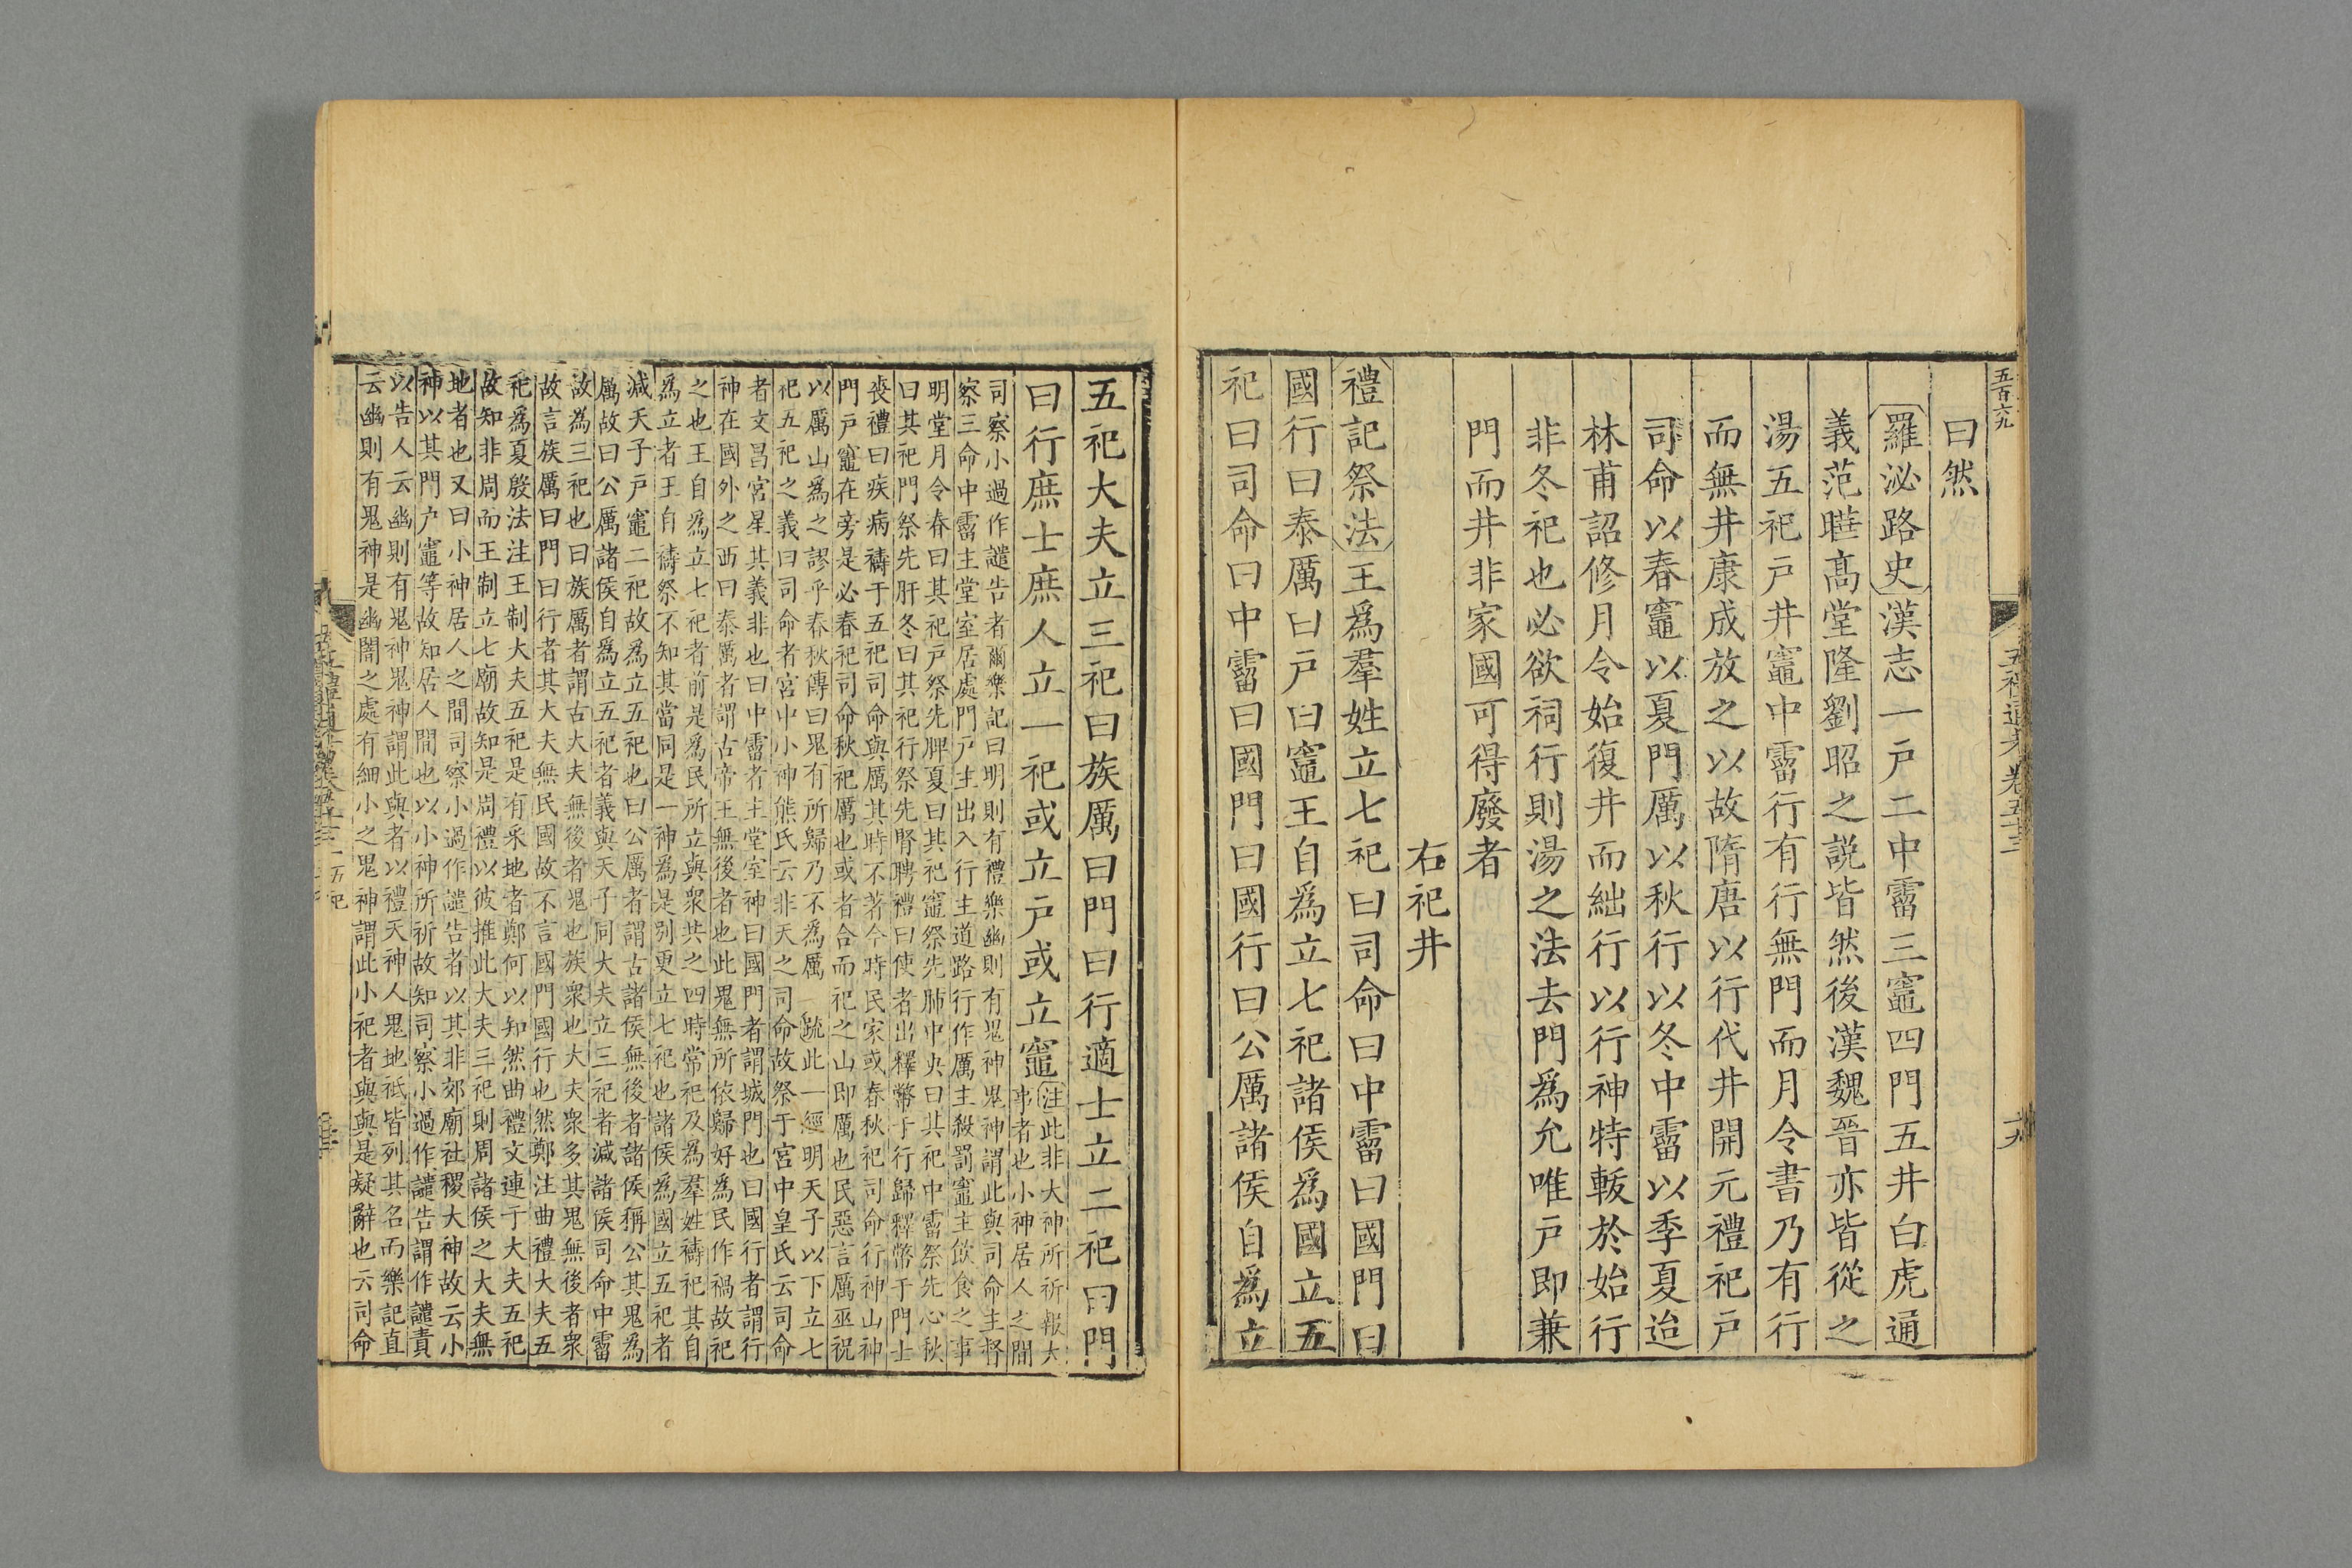 五百六九
五禮通考卷五十三
曰然
羅泌路史漢志一戸二中霤三竈四門五井白虎通
義范曄髙堂隆劉昭之説皆然後漢魏晉亦皆從之
湯五祀戸井竈中霤行有行無門而月令書乃有行
而無井康成放之以故隋唐以行代井開元禮祀戸
司命以春竈以夏門厲以秋行以冬中霤以季夏迨
林甫詔修月令始復井而絀行以行神特軷於始行
非冬祀也必欲祠行則湯之法去門爲允唯戸即兼
門而井非家國可得廢者
右祀井
禮記祭法王爲羣姓立七祀曰司命曰中霤曰國門曰
國行曰泰厲曰戸曰竈王自爲立七祀諸侯爲國立五
祀曰司命曰中霤曰國門曰國行曰公厲諸侯自爲立
五祀大夫立三祀曰族厲曰門曰行適士立二祀曰門
曰行庶士庶人立一祀或立戸或立竈注此非大神所祈報大
事者也小神居人之間
司察小過作譴告者爾樂記曰明則有禮樂幽則有鬼神鬼神謂此與司命主督
察三命中霤主堂室居處門戸主出入行主道路行作厲主殺罰竈主飲食之事
明堂月令春曰其祀戸祭先脾夏曰其祀竈祭先肺中央曰其祀中霤祭先心秋
曰其祀門祭先肝冬曰其祀行祭先腎聘禮曰使者出釋幣于行歸釋幣于門士
喪禮曰疾病禱于五祀司命與厲其時不著今時民家或春秋祀司命行神山神
門戸竈在旁是必春祀司命秋祀厲也或者合而祀之山即厲也民惡言厲巫祝
以厲山爲之謬乎春秋傳曰鬼有所歸乃不為厲 疏此一經明天子以下立七
祀五祀之義曰司命者宮中小神熊氏云非天之司命故祭于宮中皇氏云司命
者文昌宮星其義非也曰中霤者主堂室神曰國門者謂城門也曰國行者謂行
神在國外之西曰泰厲者謂古帝王無後者也此鬼無所依歸好為民作禍故祀
之也王自為立七祀者前是為民所立與衆共之四時常祀及為羣姓禱祀其自
為立者王自禱祭不知其當同是一神為是别更立七祀也諸侯為國立五祀者
減天子戸竈二祀故為立五祀也曰公厲者謂古諸侯無後者諸侯稱公其鬼為
厲故曰公厲諸侯自為立五祀者義與天子同大夫立三祀者減諸侯司命中霤
故為三祀也曰族厲者謂古大夫無後者鬼也族衆也大夫衆多其鬼無後者衆
故言族厲曰門曰行者其大夫無民國故不言國門國行也然鄭注曲禮大夫五
祀為夏殷法注王制大夫五祀是有采地者鄭何以知然曲禮文連于大夫五祀
故知非周而王制立七廟故知是周禮以彼推此大夫三祀則周諸侯之大夫無
地者也又曰小神居人之間司察小過作譴告者以其非郊廟社稷大神故云小
神以其門戸竈等故知居人間也以小神所祈故知司察小過作譴告謂作譴責
以告人云幽則有鬼神鬼神謂此與者以禮天神人鬼地祇皆列其名而樂記直
云幽則有鬼神是幽闇之處有細小之鬼神謂此小祀者與與是疑辭也云司命